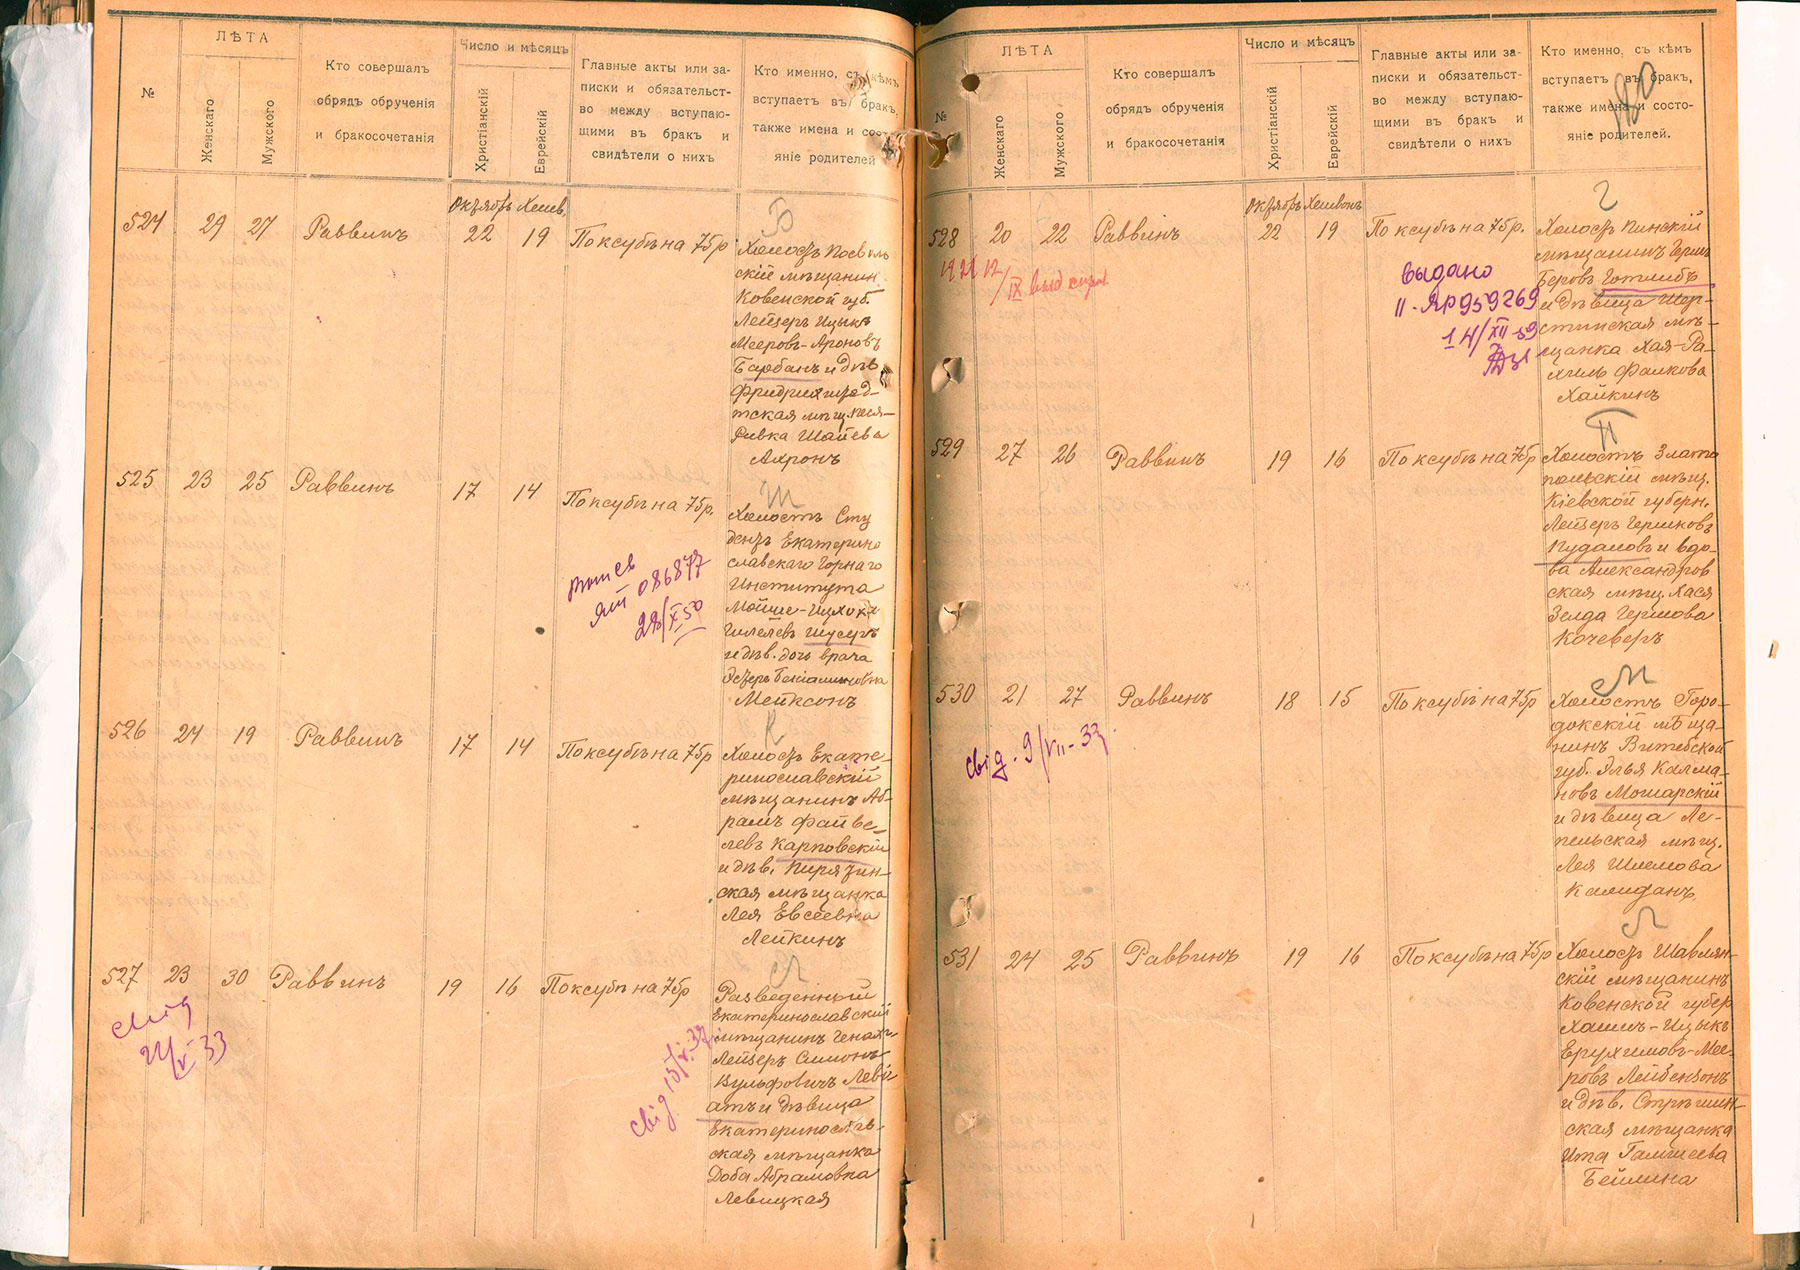 №
ЛѢТА
Женскаго
Мужского
Кто совершалъ
обрядъ обрученія
и бракосочетанія
Число и мѣсяцъ
Христіанскій
Еврейскій
Главные акты или за-
писки и обязательст-
во между вступаю-
щими въ бракъ и
свидѣтели о нихъ
Кто именно, съ кѣмъ
вступаетъ въ бракъ,
также имена и сос
яніе родителей
Октябрь Хешв.
524 29 27 Раввинъ 22 19 По ксубѣ на 75 р
Б
Холостъ
скій мѣщанин
Ковенской губ.
Лейзеръ Ицыкъ
Мееровъ-Ароновъ
Барбанъ и дѣв
Фридрихштад-
тская мѣщ.
Ривка Шаиева
Ахронъ
525 23 25 Раввинъ 17 14 По ксубѣ на 75 р.
Ш
Холостъ Сту
дентъ Екатерино
славскаго Горнаго
Института
Мойше-Ицхокъ
Гилелевъ Шусеръ
и дѣв. дочь врача
Эсѳирь Беніаминовна
Мейксонъ
086877
28/X 50
526 24 19 Раввинъ 17 14 По ксубѣ на 75 р
К
Холостъ Екате-
ринославскій
мѣщанинъ Аб-
рамъ Файве-
левъ Карповскій
и дѣв. Пирятин-
ская мѣщанка
Лея Евсеевна
Лейкинъ
527 23 30 Раввинъ 19 16 По ксубѣ на 75 р
Л
Разведенный
Екатеринославскій
мѣщанинъ Генах-
Лейзеръ Симонъ
Вульфовичъ Леви
атъ и дѣвица
Екатеринослав-
ская мѣщанка
Доба Абрамовна
Левицкая
свід
33
свід 15/V. 37
№
ЛѢТА
Женскаго
Мужского
Кто совершалъ
обрядъ обрученія
и бракосочетанія
Число и мѣсяцъ
Христіанскій
Еврейскій
Главные акты или за-
писки и обязательст-
во между вступаю-
щими въ бракъ и
свидѣтели о нихъ
Кто именно, съ кѣмъ
вступаетъ въ бракъ,
также имена и состо-
яніе родителей.
180
Октябрь Хешвонъ
528 20 22 Раввинъ 22 19 По ксубѣ на 75 р.
Г
Холостъ Пинскій
мѣщанинъ Герш
Беровъ Готлибъ
и дѣвица Шер-
стинская мѣ-
щанка Хая-Ра-
хиль Фалкова
Хайкинъ
Выдано
II-ЯР 959269
14/XII-59
529 27 26 Раввинъ 19 16 По ксубѣ на 75 р
П
Холостъ Злато
польскій мѣщ.
Кіевской губерн.
Лейзеръ Гершковъ
Пудаловъ и вдо-
ва Александров
ская мѣщ. Хася
Зелда Гершова
Кочеверъ
530 21 27 Раввинъ 18 15 По ксубѣ на 75 р
М
Холостъ Горо-
докскій мѣща-
нинъ Витебской
губ. Элья Калма-
новъ Мошарскій
и дѣвица Ле-
пельская мѣщ.
Лея Шлемова
Калиданъ
свід. 9/VII-33
531 24 25 Раввинъ 19 16 По ксубѣ на 75 р
Л
Холостъ Шавлян-
скій мѣщанинъ
Ковенской губер
Хаимъ-Ицыкъ
Ерухимовъ-Мее-
ровъ Лейбензонъ
и дѣв. Стрѣшин-
ская мѣщанка
Ита Гамшеева
Бейлина